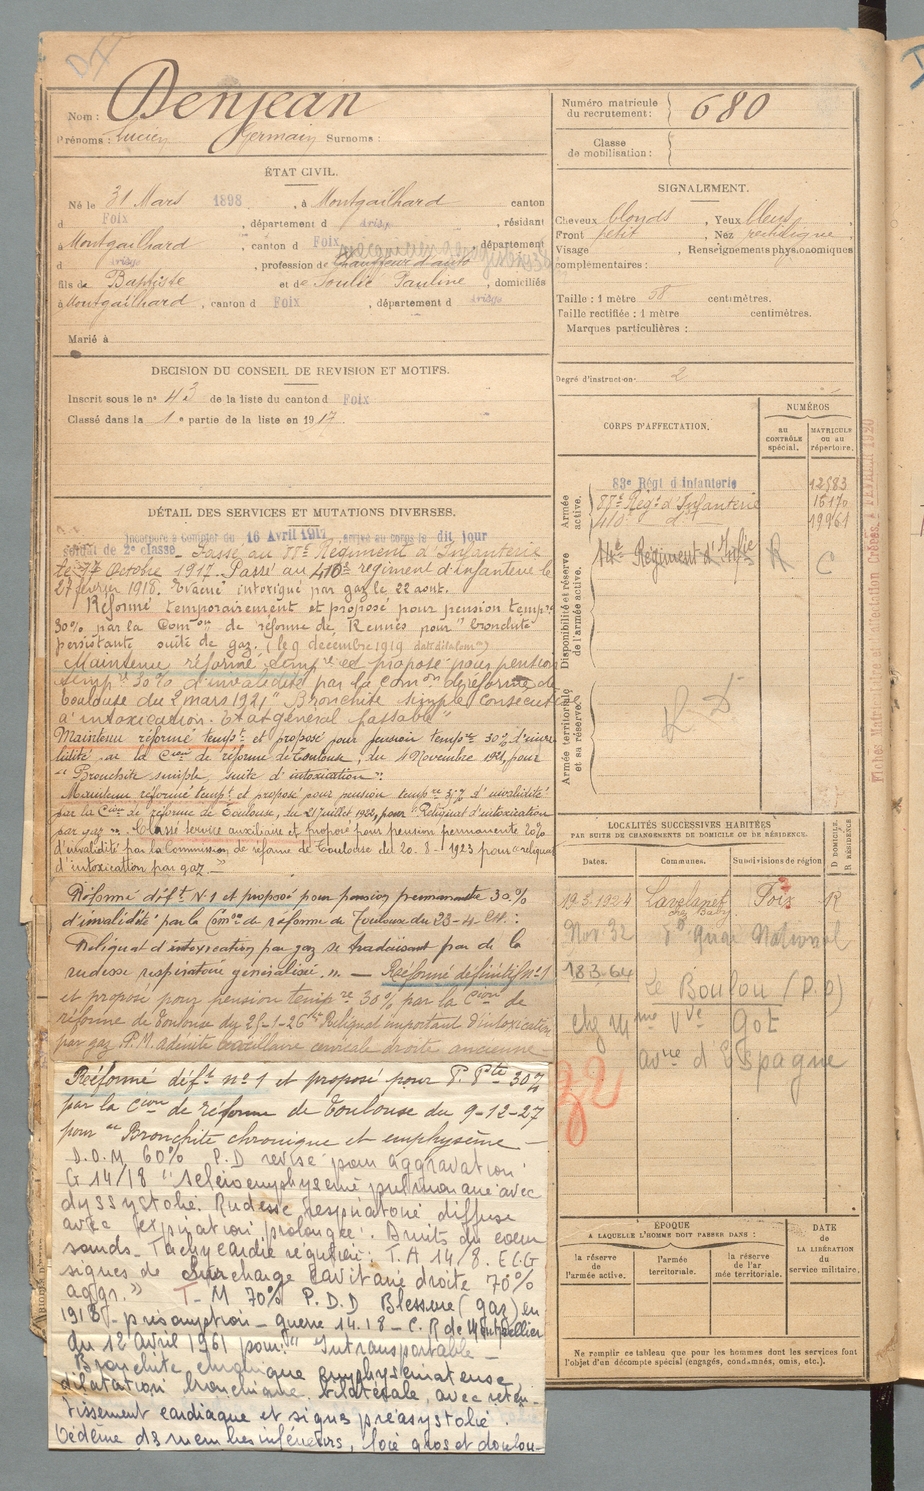 Nom : Denjean
Prénoms : Lucien Germain Surnoms :
ÉTAT CIVIL.
Né le 31 Mars 1898, à Montgailhard canton
d Foix, département d Ariège, résidant
à Montgailhard, canton d Foix, département
d Ariège, profession de chauffeur d'auto
fils de Baptiste et de Soulié Pauline, domiciliés
à Montgailhard, canton d Foix, département d Ariège
Marié à
DECISION DU CONSEIL DE REVISION ET MOTIFS.
Inscrit sous le n° 43 de la liste du canton d Foix
Classé dans la 1e partie de la liste en 1917.
DÉTAIL DES SERVICES ET MUTATIONS DIVERSES.
Incorporé à compter du 16 Avril 1917, arrivé au corps le dit jour
soldat de 2e classe - Passé au 87e Régiment d'Infanterie
le 9 Octobre 1917. Passé au 410e régiment d'infanterie le
27 février 1918. Evacué intoxiqué par gaz le 22 aout.
Réformé temporairement et proposé pour pension tempre
30% par la Comon de réforme de Rennes pour "bronchite
persistante suite de gaz. (le 9 décembre 1919
Maintenu réformé tempre et proposé pour pension
tempre 30% d'invalidité par la Comon de réforme de
Toulouse du 2 mars 1921 "Bronchite simple consécutive
à intoxication. Etat général passable"
Maintenu réformé tempt et proposé pour pension tempre 30% d'inva
lidité par la Cion de réforme de Toulouse, du 4 Novembre 1921, pour
"Bronchite simple, suite d'intoxication".
Maintenu réformé tempt et proposé pour pension tempre d'invalidité
par la Cion de réforme de Toulouse, du 21 juillet 1922, pour "Reliquat d'intoxication
par gaz". Classé service auxiliaire et proposé pour pension permanente 20%
d'invalidité par la Commission de réforme de Toulouse du 20-8-1923 pour "reliquat
d'intoxication par gaz."
Réformé déft N°1 et proposé pour pension permanente 30%
d'invalidité par la Comon de réforme de Toulouse du 23-4-24 :
"Reliquat d'intoxication par gaz se traduisant par de la
rudesse respiratoire généralisée". — Réformé définitif n°1
et proposé pour pension tempre 30% par la Cion de
réforme de Toulouse du 25-1-26 "Reliquat important d'intoxication
par gaz P.M. adénite cervicale droite ancienne
Réformé déft n°1 et proposé pour P. Pte 30%
par la Cion de réforme de Toulouse du 9-12-27
pour "Bronchite chronique et emphysème —
D.O.M 60% P.D revisé pour aggravation
G 14/18 "Scléroemphysème pulmonaire avec
dyssystolie. Rudesse respiratoire diffuse
avec expiration prolongée. Bruits du coeur
sourds. Tachycardie régulière: T.A 14/8. ECG
signes de surcharge cavitaire droite 70%
aggr." T-M 70% P.D.D Blessure (gaz) en
1918 - présomption - guerre 14.18 - C.R de Montpellier
du 12 avril 1961 pour: "Intransportable -
Bronchite chronique emphysémateuse,
dilatation bronchique bilatérale, avec reten-
tissement cardiaque et signes préasystolie.
Oedème des membres inférieurs, foie gros et doulou-
Numéro matricule du recrutement : 680
Classe de mobilisation :
SIGNALEMENT.
Cheveux blonds, Yeux bleus,
Front petit, Nez rectiligne,
Visage, Renseignements physionomiques
complémentaires :
Taille : 1 mètre 58 centimètres.
Taille rectifiée : 1 mètre centimètres.
Marques particulières :
Degré d'instruction: 2
CORPS D'AFFECTATION.
NUMÉROS
au CONTRÔLE spécial.
MATRICULE ou au répertoire.
Armée active.
83e Régt d'Infanterie 12583
87e Régt d'Infanterie 15170
410e d° 19961
Disponibilité et réserve de l'armée active.
14e Régiment d'Infie R C
Armée territoriale et sa réserve.
R D
Fiches Matricule et d'affectation Créées
LOCALITÉS SUCCESSIVES HABITÉES
PAR SUITE DE CHANGEMENTS DE DOMICILE OU DE RÉSIDENCE.
Dates. Communes. Subdivisions de région D DOMICILE. R RÉSIDENCE
19.3.1924 Lavelanet Foix R
chez Baby
Nov. 32 National
18.3.64 Le Boulou (P.O)
chez Mme Vve Got
avue d'Espagne
ÉPOQUE
A LAQUELLE L'HOMME DOIT PASSER DANS :
la réserve de l'armée active.
l'armée territoriale.
la réserve de l'armée territoriale.
DATE DE LA LIBÉRATION du service militaire.
Ne remplir ce tableau que pour les hommes dont les services font
l'objet d'un décompte spécial (engagés, condamnés, omis, etc.).